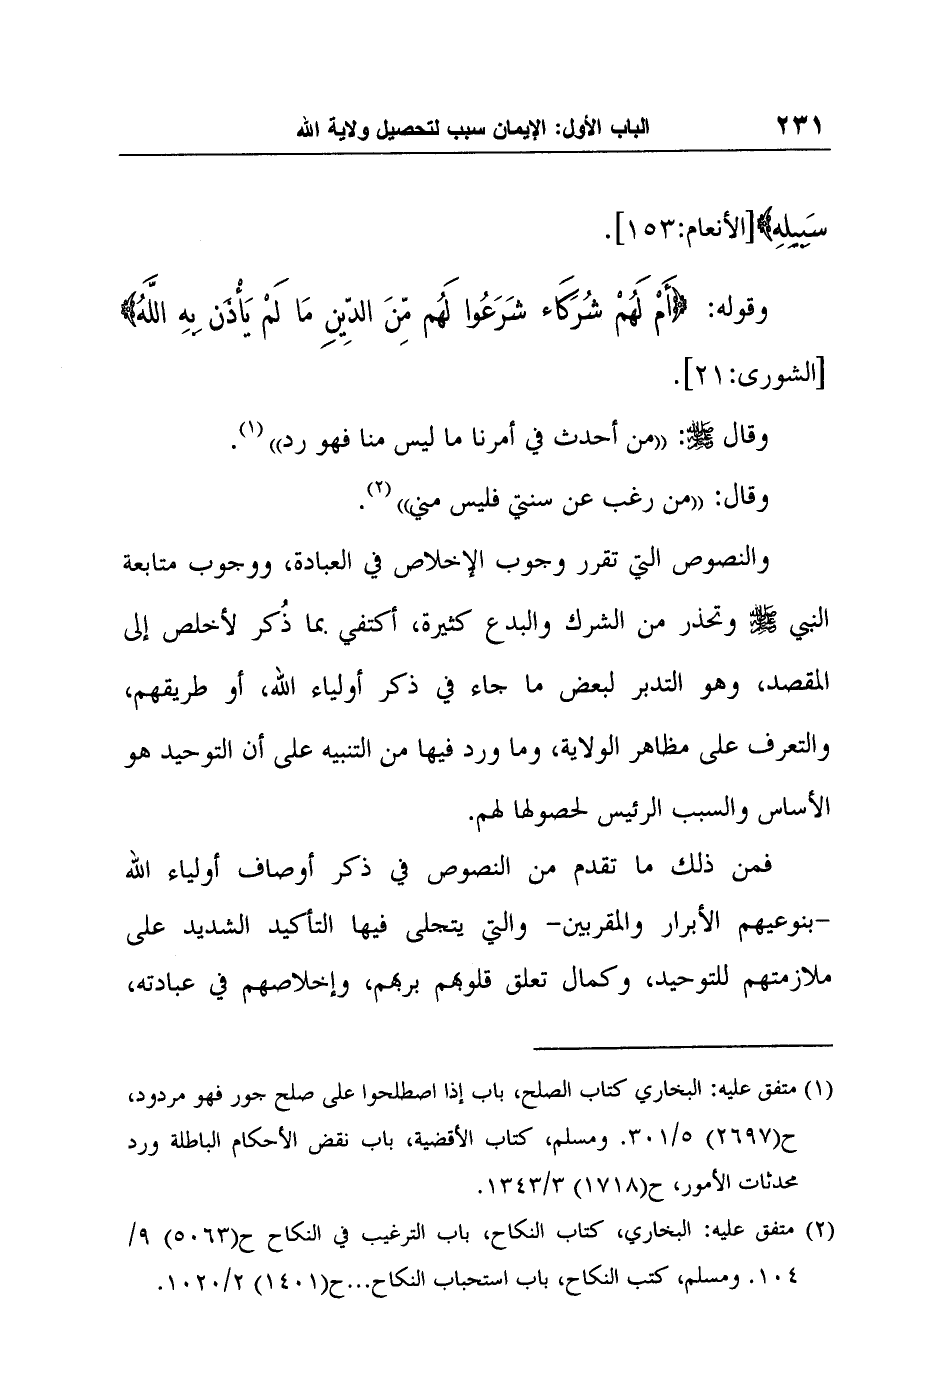 ٢٣١ الباب الأول: الإيمان سبب لتحصيل ولاية الله
سَبِيلِهِ﴾[الأنعام:١٥٣].
وقوله: ﴿أَمْ لَهُمْ شُرَكَاء شَرَعُوا لَهُم مِّنَ الدِّينِ مَا لَمْ يَأْذَن بِهِ اللَّهُ﴾
[الشورى:٢١].
وقال ﷺ: ((من أحدث في أمرنا ما ليس منا فهو رد))(١).
وقال: ((من رغب عن سنتي فليس مني))(٢).
والنصوص التي تقرر وجوب الإخلاص في العبادة، ووجوب متابعة
النبي ﷺ وتحذر من الشرك والبدع كثيرة، أكتفي بما ذُكر لأخلص إلى
المقصد، وهو التدبر لبعض ما جاء في ذكر أولياء الله، أو طريقهم،
والتعرف على مظاهر الولاية، وما ورد فيها من التنبيه على أن التوحيد هو
الأساس والسبب الرئيس لحصولها لهم.
فمن ذلك ما تقدم من النصوص في ذكر أوصاف أولياء الله
-بنوعيهم الأبرار والمقربين- والتي يتجلى فيها التأكيد الشديد على
ملازمتهم للتوحيد، وكمال تعلق قلوبهم بربهم، وإخلاصهم في عبادته،
(١) متفق عليه: البخاري كتاب الصلح، باب إذا اصطلحوا على صلح جور فهو مردود،
ح(٢٦٩٧) ٣٠١/٥. ومسلم، كتاب الأقضية، باب نقض الأحكام الباطلة ورد
محدثات الأمور، ح(١٧١٨) ١٣٤٣/٣.
(٢) متفق عليه: البخاري، كتاب النكاح، باب الترغيب في النكاح ح(٥٠٦٣) ٩/
١٠٤. ومسلم، كتب النكاح، باب استحباب النكاح...ح(١٤٠١) ١٠٢٠/٢.